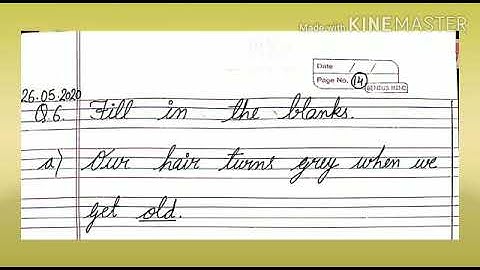 Made with KINEMASTER
Date / /
Page No. 14
26.05.2020
Q.6. Fill in the blanks.
a) Our hair turns grey when we
get old.